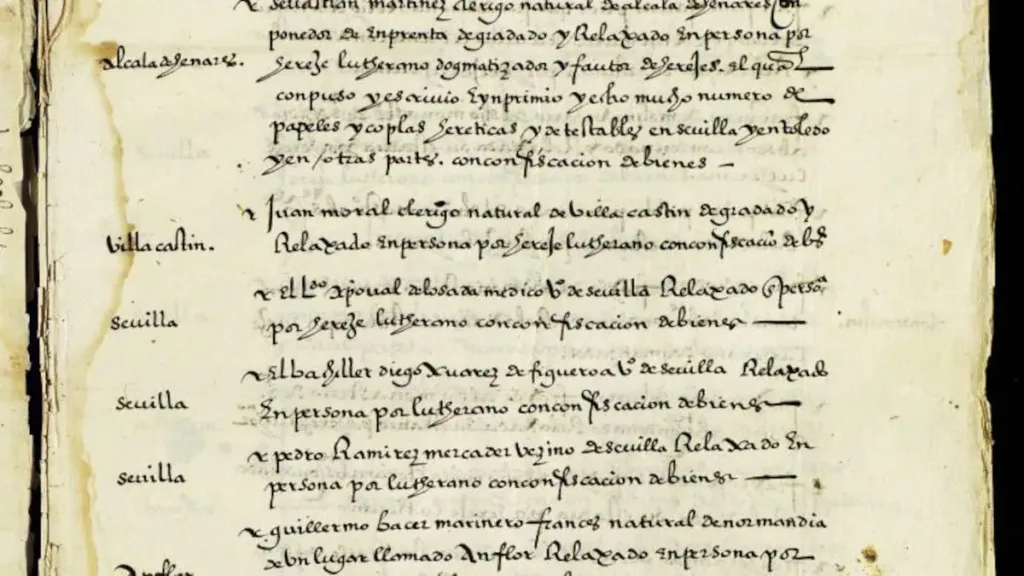 sevastian martinez clerigo natural de alcala de henares Con
ponedor de enprenta degradado y Relaxado en persona por
alcala de henares. hereje lutherano dogmatizador y fautor de herejes. el qual
conpuso y escrivio E ynprimio y echo mucho numero de
papeles y coplas hereticas y detestables en sevilla y en toledo
y en otras partes. con confiscacion de bienes
Juan moral clerigo natural de villa castin degradado y
villa castin. Relaxado en persona por hereje lutherano con confiscacio de bes
El Ldo Xpoval de losada medico vo de sevilla Relaxado e perso
sevilla por hereje lutherano con confiscacion de bienes
El bachiller diego xuarez de figueroa vo de sevilla Relaxado
sevilla En persona por lutherano con confiscacion de bienes
pedro Ramirez mercader vezino de sevilla Relaxado En
sevilla persona por lutherano con confiscacion de bienes
guillermo bacer marinero frances natural de normandia
de un lugar llamado Anflor Relaxado en persona por
Anflor